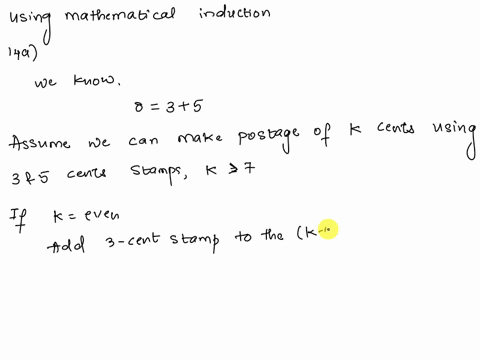 using mathematical induction
14a)
we know.
8 = 3+5
Assume we can make postage of k cents using
3 & 5 cents stamps, k ≥ 7
If k = even
Add 3-cent stamp to the (k-